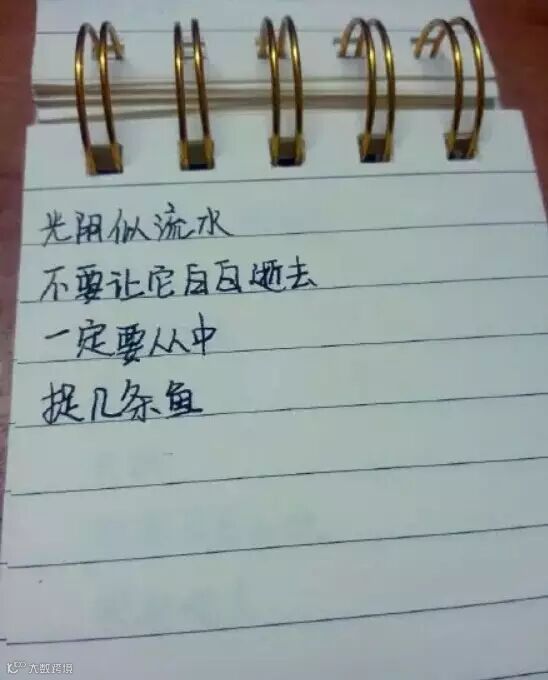 光阴似流水
不要让它白白逝去
一定要从中
捉几条鱼
大数跨境